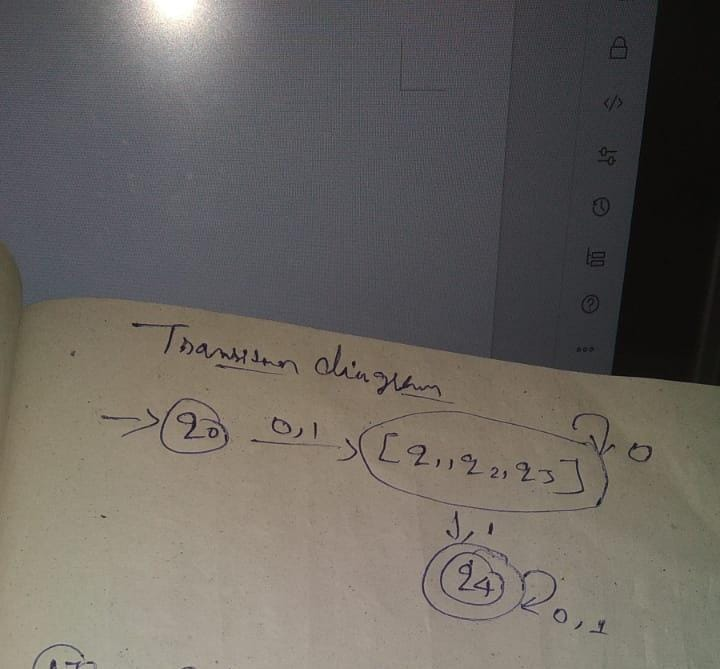 Transition diagram
→ q0 0,1 → [q1, q2, q3] 0
↓, 1
q4 0, 1